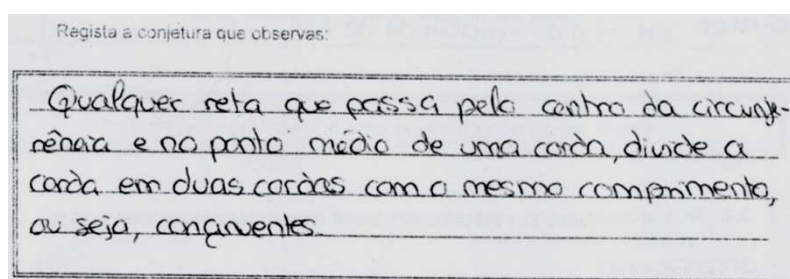 Regista a conjetura que observas:
Qualquer reta que passa pelo centro da circunfe-
rência e no ponto médio de uma corda, divide a
corda em duas cordas com o mesmo comprimento,
ou seja, congruentes.